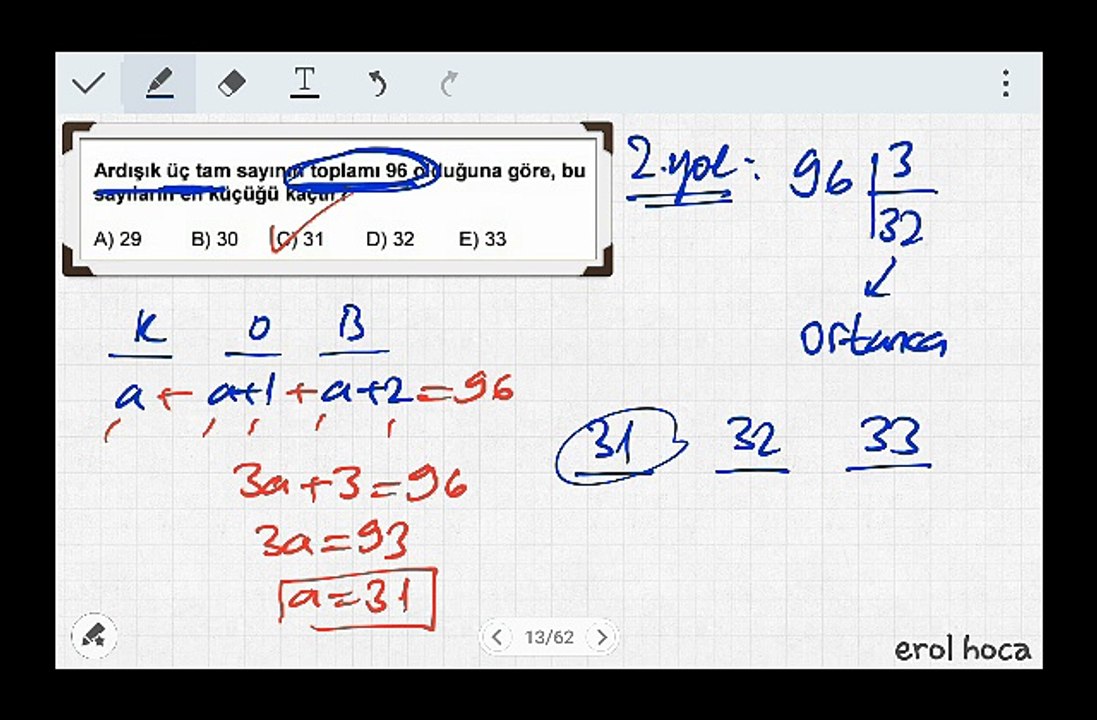 Ardışık üç tam sayının toplamı 96 olduğuna göre, bu
sayıların en küçüğü kaçtır?
A) 29 B) 30 C) 31 D) 32 E) 33
2.yol: 96 3
32
Ortanca
K O B
a + a+1 + a+2 = 96
3a+3=96
3a=93
a=31
31 32 33
13/62
erol hoca
T